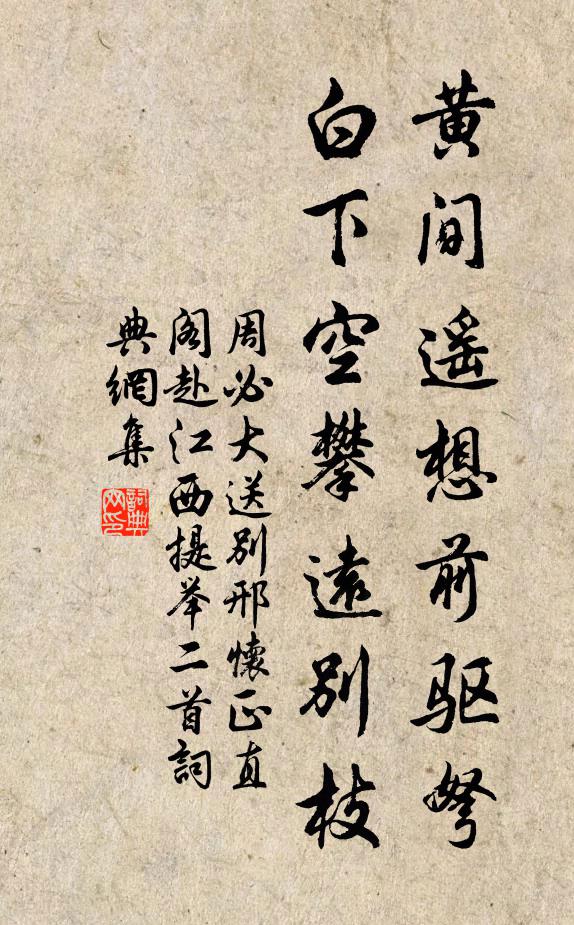 黄间遥想前驱弩
白下空攀遠别枝
周必大送别邢懷正直
阁赴江西提举二首詞
典網集
詞典
网印